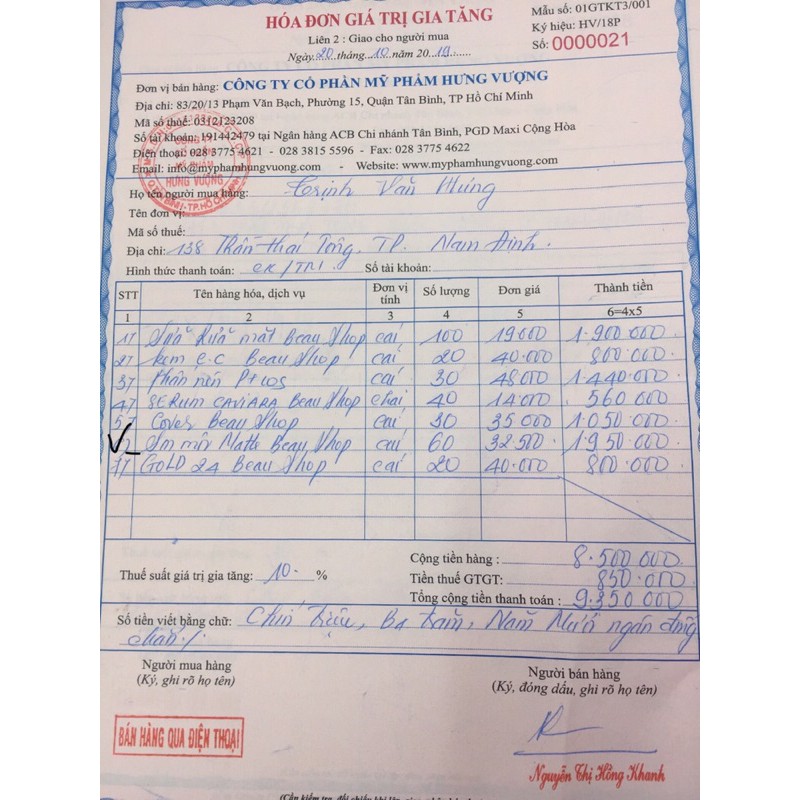 HÓA ĐƠN GIÁ TRỊ GIA TĂNG
Liên 2 : Giao cho người mua
Ngày 20 tháng 10 năm 2019
Mẫu số: 01GTKT3/001
Ký hiệu: HV/18P
Số: 0000021
Đơn vị bán hàng: CÔNG TY CỔ PHẦN MỸ PHẨM HƯNG VƯỢNG
Địa chỉ: 83/20/13 Phạm Văn Bạch, Phường 15, Quận Tân Bình, TP Hồ Chí Minh
Mã số thuế: 0312123208
Số tài khoản: 191442479 tại Ngân hàng ACB Chi nhánh Tân Bình, PGD Maxi Cộng Hòa
Điện thoại: 028 3775 4621 - 028 3815 5596 - Fax: 028 3775 4622
Email: info@myphamhungvuong.com - Website: www.myphamhungvuong.com
HƯNG VƯỢNG
Họ tên người mua hàng: Trịnh Văn Hùng
Tên đơn vị:
Mã số thuế:
Địa chỉ: 138 Trần Thái Tông, TP. Nam Định.
Hình thức thanh toán: CK/TM Số tài khoản:
STT Tên hàng hóa, dịch vụ Đơn vị tính Số lượng Đơn giá Thành tiền
1 2 3 4 5 6=4x5
1 Sữa Rửa mặt Beau Shop cái 100 19000 1.900.000
2 kem e.c Beau Shop cái 20 40.000 800.000
3 Phấn nén cái 30 48000 1.440.000
4 SERUM CAVIARA Beau Shop chai 40 14000 560000
5 Cover Beau Shop cái 30 35000 1.050.000
Beau Shop cái 60 32500 1.950.000
7 GOLD 24 Beau Shop cái 20 40.000 800.000
Cộng tiền hàng : 8.500.000
Thuế suất giá trị gia tăng: 10 % Tiền thuế GTGT: 850.000
Tổng cộng tiền thanh toán : 9.350.000
Số tiền viết bằng chữ: Chín Triệu, Ba trăm, Năm Mươi ngàn đồng
chẵn./.
Người mua hàng
(Ký, ghi rõ họ tên)
Người bán hàng
(Ký, đóng dấu, ghi rõ họ tên)
BÁN HÀNG QUA ĐIỆN THOẠI
Nguyễn Thị Hồng Khanh